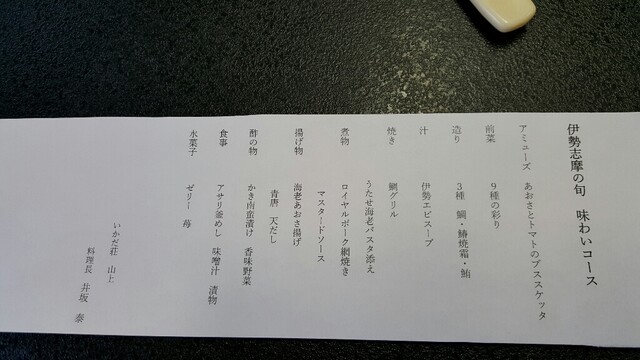 伊勢志摩の旬　味わいコース
アミューズ　あおさとトマトのブススケッタ
前菜　９種の彩り
造り　３種　鯛・鰆焼霜・鮪
汁　伊勢エビスープ
焼き　鯛グリル
うたせ海老パスタ添え
煮物　ロイヤルポーク網焼き
マスタードソース
揚げ物　海老あおさ揚げ
青唐　天だし
酢の物　かき南蛮漬け　香味野菜
食事　アサリ釜めし　味噌汁　漬物
水菓子　ゼリー　苺
いかだ荘　山上
料理長　井坂　泰